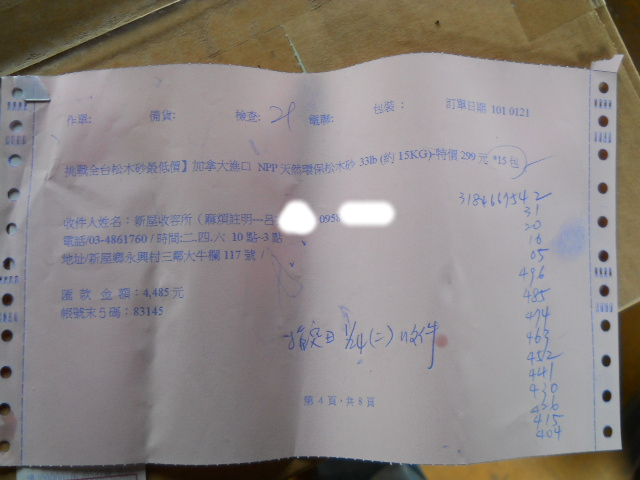 作單: 備貨: 檢查: 電聯: 包裝： 訂單日期 101 0121
挑戰全台松木砂最低價】加拿大進口 NPP 天然環保松木砂 33lb (約 15KG)-特價 299 元 *15 包
收件人姓名：新屋收容所（麻煩註明---呂 0958
電話/03-4861760 / 時間:二.四.六 10 點-3 點
地址/新屋鄉永興村三鄰大牛欄 117 號 /
匯 款 金 額：4,485 元
帳號末 5 碼：83145
3184669542
31
20
16
05
496
485
474
463
452
441
430
426
415
404
指定日 1/24 (二) 收件
第 4 頁，共 8 頁